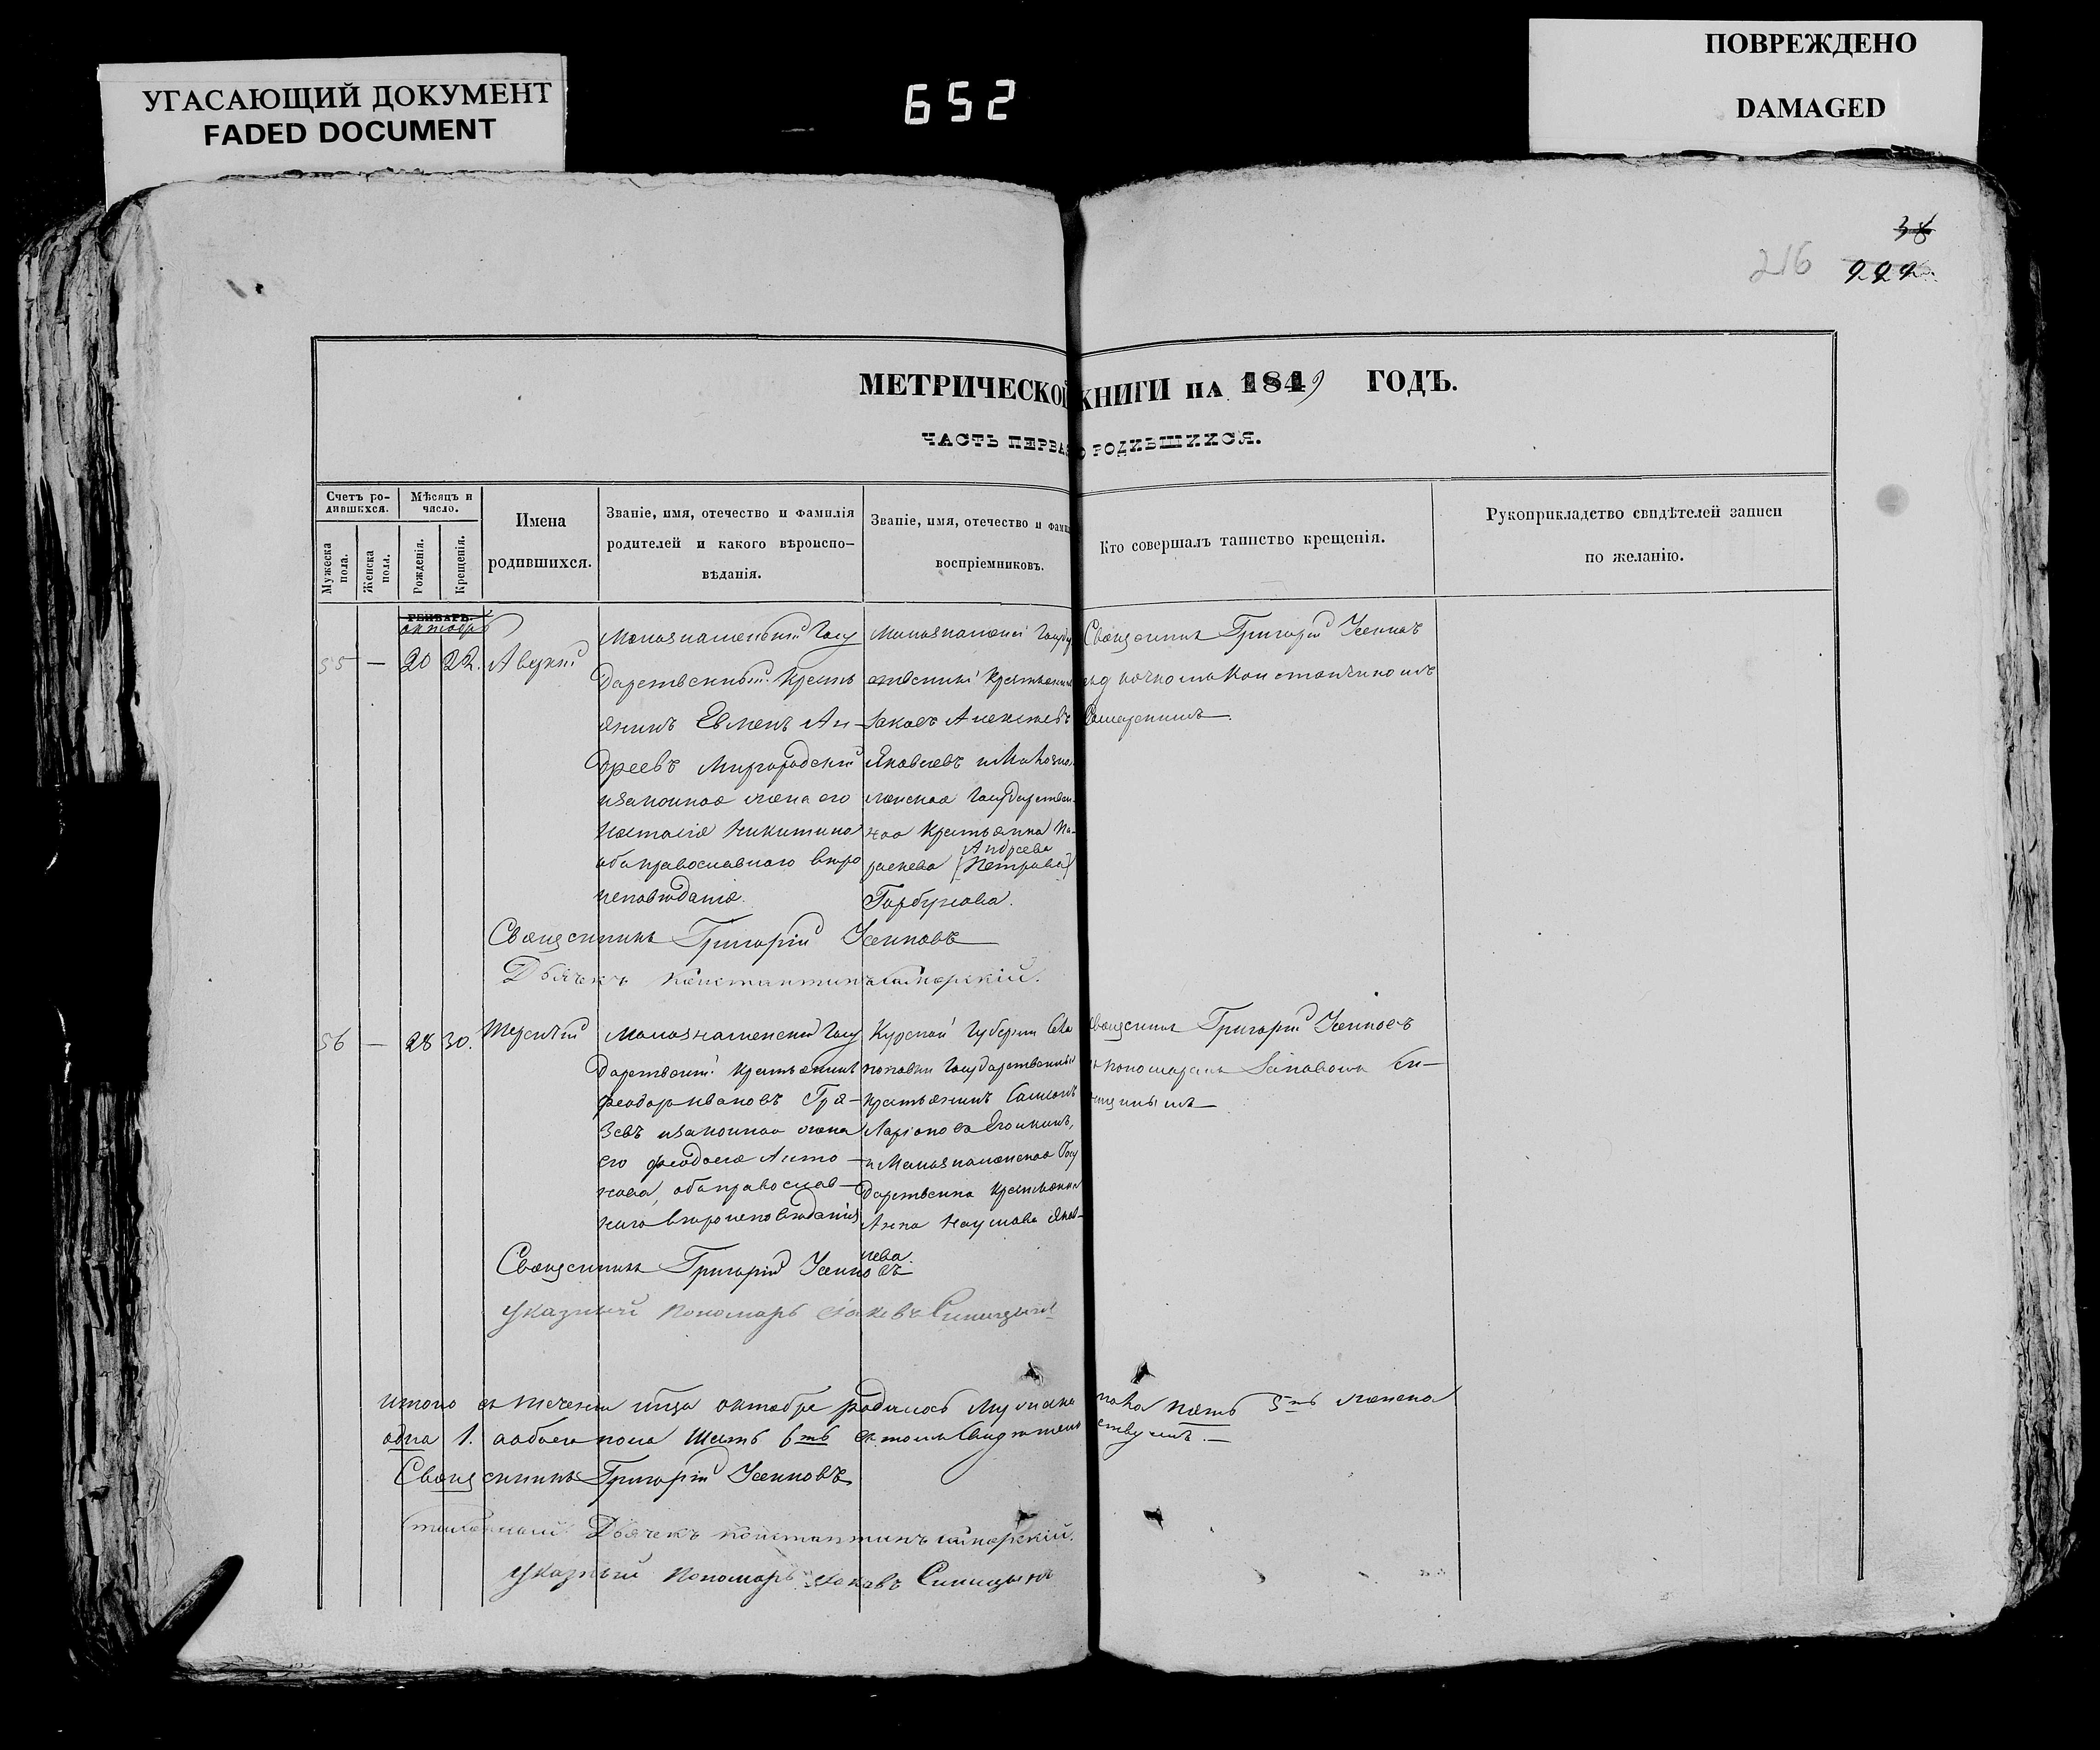 УГАСАЮЩИЙ ДОКУМЕНТ
FADED DOCUMENT
652
ПОВРЕЖДЕНО
DAMAGED
38
216 222
МЕТРИЧЕСКОЙ КНИГИ НА 1849 ГОДЪ.
ЧАСТЬ ПЕРВАЯ О РОДИВШИХСЯ.
Счетъ ро-
дившихся.
Мужеска
пола.
Женска
пола.
Мѣсяцъ и
число.
Рожденія.
Крещенія.
Имена
родившихся.
Званіе, имя, отечество и фамилія
родителей и какого вѣроиспо-
вѣданія.
Званіе, имя, отечество и фами
воспріемниковъ.
Кто совершалъ таинство крещенія.
Рукоприкладство свидѣтелей записи
по желанію.
ГЕНВАРЬ.
октябрь
55 — 20 22. Аверкій
Малознаменскій Госу
дарственный Кресть
янинъ Евменъ Ан-
дреевъ Миргородскій
изаконная жена его
Настасія Никитина
оба православнаго виро
исповѣданія.
Малознаменскій Госуда
ственный Крестьянинъ
Іаковъ Алексѣевъ
Яковлевъ и Малозна
менская Государствен
ная Крестьянка Па-
Андреева
раскева [Петрова]
Горбунова.
Священникъ Григорій
съ дьячкомъ Константиномъ
Священникъ Григорій
Дьячекъ Константинъ
56 — 28 30. Терентій
Малознаменскій Госу
дарственный Крестьянинъ
Феодоръ Ивановъ Гря-
зевъ изаконная жена
его Феодосія Анто-
нова, оба православ-
наго вѣроисповѣданія
Курской Губерніи
Государственный
крестьянинъ
Ларіоновъ
и Малознаменская Госу
дарственна Крестьянка
Анна Наумова Яков-
лева.
Священникъ Григорій
и пономаремъ Іаковомъ Си-
ницынымъ
Священникъ Григорій
Указный Пономарь Іаковъ Синицынъ
Итого въ теченіи мѣца октября родилось Мужеска пола пять 5ть женска
одна 1. а обоего пола Шесть 6ть въ томъ Свидѣтельствуемъ. —
Священникъ Григорій
Дьячекъ Константинъ
Указный Пономарь Іаковъ Синицынъ